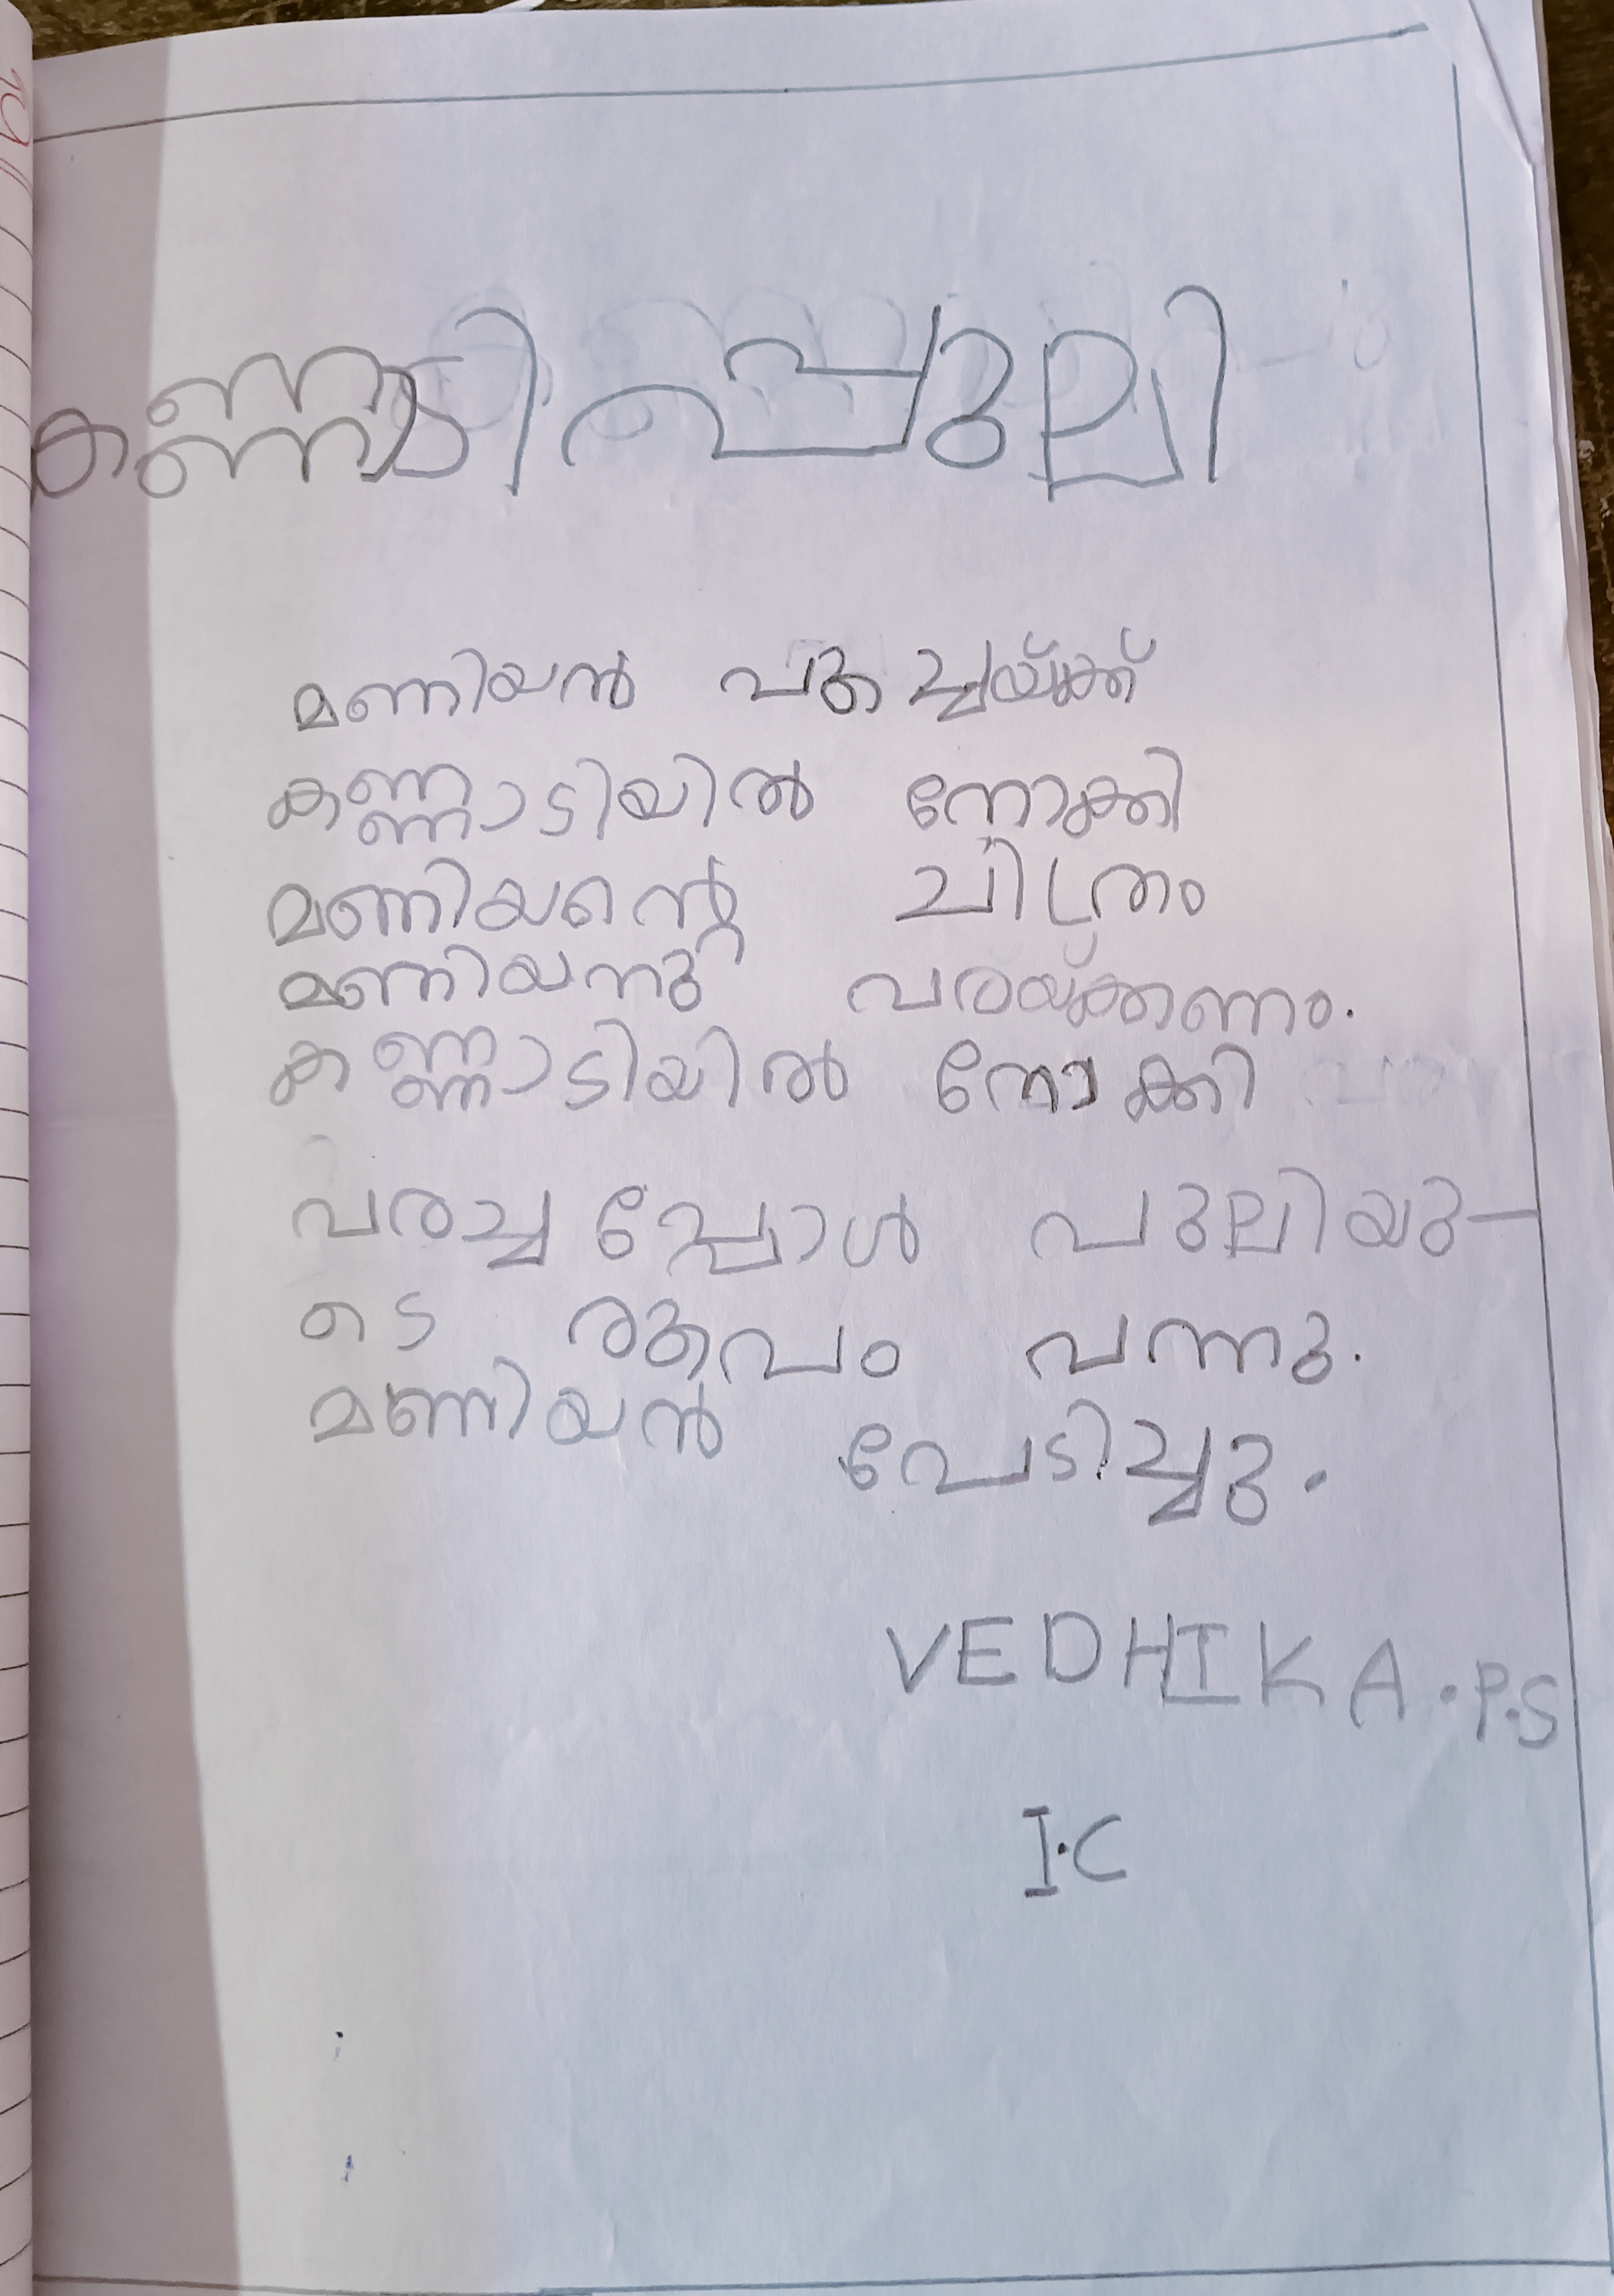 കണ്ണാടിപ്പുലി
മണിയൻ പൂച്ചയ്ക്ക്
കണ്ണാടിയിൽ നോക്കി
മണിയന്റെ ചിത്രം
മണിയനു വരയ്ക്കണം.
കണ്ണാടിയിൽ നോക്കി
വരച്ചപ്പോൾ പുലിയു-
ടെ രൂപം വന്നു.
മണിയൻ പേടിച്ചു.
VEDHIKA.P.S
I.C